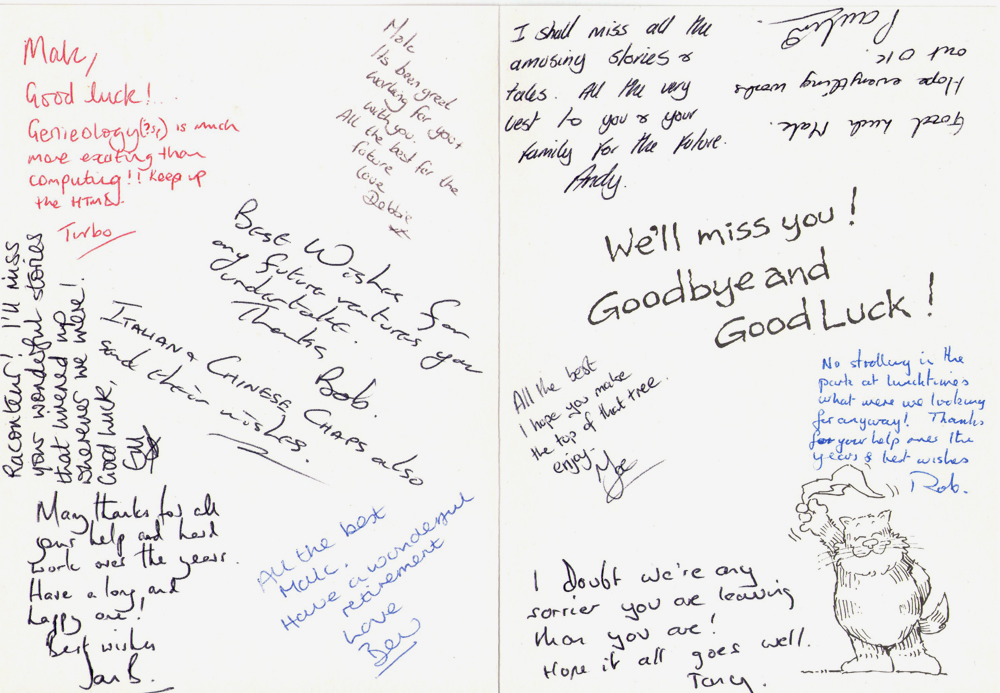 Malc,
Good luck!...
Genieology(?sp) is much
more exciting than
computing!! Keep up
the HTML.
Turbo
Malc
Its been great
working for you +
with you.
All the best for the
future
love
Debbie x
Raconteur! I'll miss
your wonderful stories
that livened up
wherever we were!
Good luck,
Best Wishes for
any future ventures you
undertake.
Thanks
Bob.
ITALIAN & CHINESE CHAPS also
send their wishes.
Many thanks for all
your help and hard
work over the years.
Have a long, and
happy one!
Best wishes
Jan B.
All the best
Malc.
Have a wonderful
retirement
Love
Bev
I shall miss all the
amusing stories &
tales. All the very
best to you & your
family for the future.
Andy.
Good luck Malc.
Hope everything works
out OK.
Pauline
We'll miss you!
Goodbye and
Good Luck!
All the best
I hope you make
the top of that tree.
enjoy.
No strolling in the
park at lunchtimes
what were we looking
for anyway! Thanks
for your help over the
years & best wishes
Rob.
I doubt we're any
sorrier you are leaving
than you are!
Hope it all goes well.
Tony.